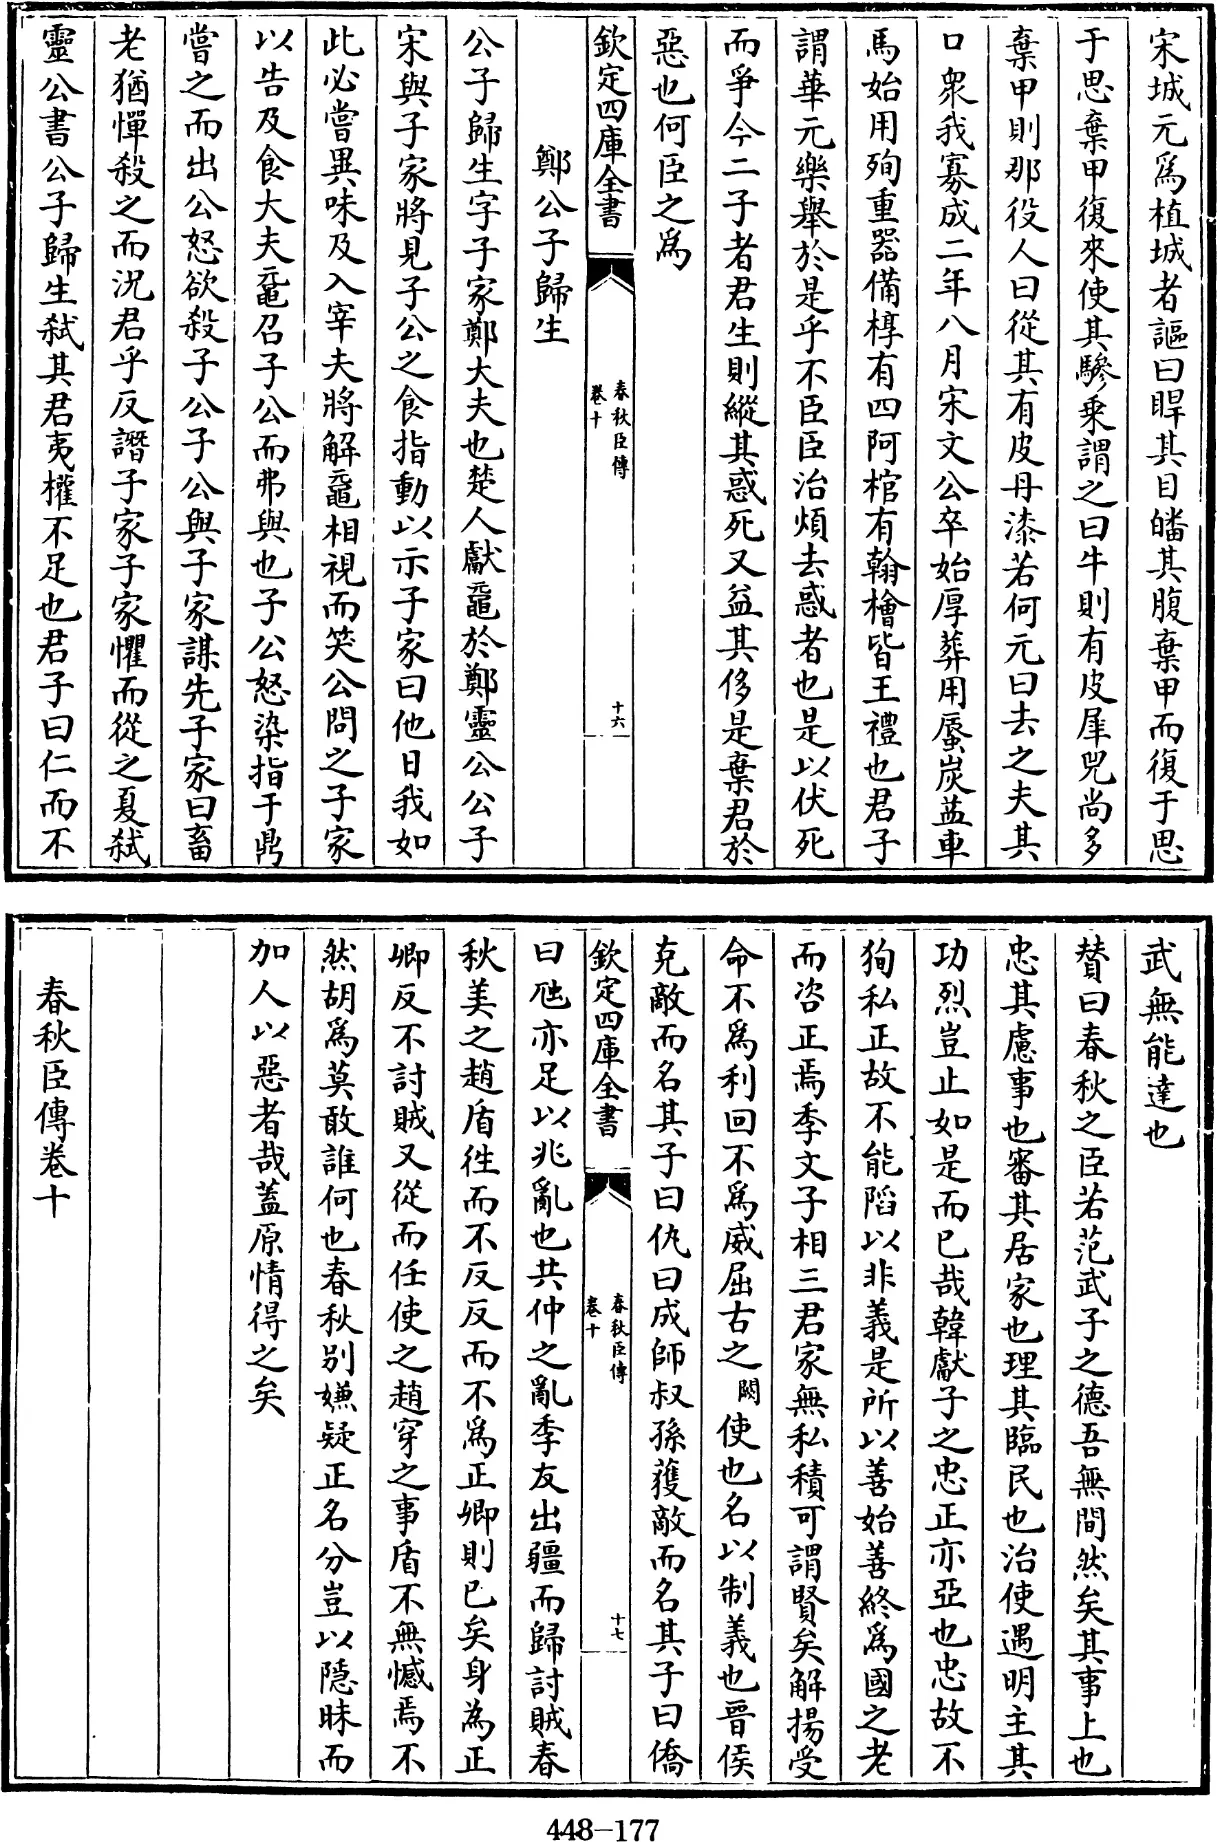 宋城元爲植城者謳曰睅其目皤其腹棄甲而復于思
于思棄甲復來使其驂乘謂之曰牛則有皮犀兕尚多
棄甲則那役人曰從其有皮丹漆若何元曰去之夫其
口衆我寡成二年八月宋文公卒始厚葬用蜃炭益車
馬始用殉重器備椁有四阿棺有翰檜皆王禮也君子
謂華元樂舉於是乎不臣臣治煩去惑者也是以伏死
而爭今二子者君生則縱其惑死又益其侈是棄君於
惡也何臣之爲
欽定四庫全書
春秋臣傳
卷十
十六
鄭公子歸生
公子歸生字子家鄭大夫也楚人獻黿於鄭靈公公子
宋與子家將見子公之食指動以示子家曰他日我如
此必嘗異味及入宰夫將解黿相視而笑公問之子家
以告及食大夫黿召子公而弗與也子公怒染指于鼎
嘗之而出公怒欲殺子公子公與子家謀先子家曰畜
老猶憚殺之而況君乎反譖子家子家懼而從之夏弒
靈公書公子歸生弒其君夷權不足也君子曰仁而不
武無能達也
賛曰春秋之臣若范武子之德吾無間然矣其事上也
忠其慮事也審其居家也理其臨民也治使遇明主其
功烈豈止如是而已哉韓獻子之忠正亦亞也忠故不
狥私正故不能陷以非義是所以善始善終爲國之老
而咨正焉季文子相三君家無私積可謂賢矣解揚受
命不爲利回不爲威屈古之闕使也名以制義也晉侯
克敵而名其子曰仇曰成師叔孫獲敵而名其子曰僑
曰虺亦足以兆亂也共仲之亂季友出疆而歸討賊春
秋美之趙盾徃而不反反而不爲正卿則已矣身為正
卿反不討賊又從而任使之趙穿之事盾不無憾焉不
然胡爲莫敢誰何也春秋別嫌疑正名分豈以隱昧而
加人以惡者哉蓋原情得之矣
欽定四庫全書
春秋臣傳
卷十
十七
春秋臣傳卷十
448-177